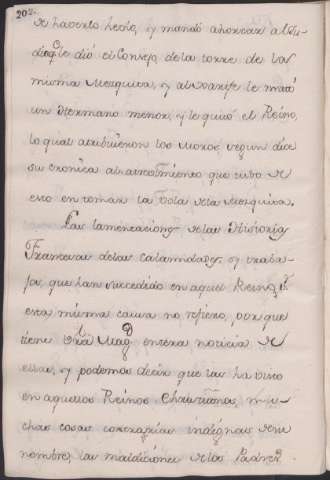 202.
de haverlo hecho, y mandó ahorcar al Ju-
dio, qe le dió el Consejo, de la torre de la
misma Mezquita, y al Xarife le mató
un Hermano menor, y le quitó el Reino,
lo qual atribuieron los Moros segun dice
su cronica al atrevimiento que tubo de
esto en tomar la Vola de la Mezquita.
Las lamentaciones de las Historias
Francesas de las calamidades, y traba-
jos que han succedido en aquel Reino pr
esta misma causa no refiero, por que
tiene Vra Magd entera noticia de
ellas, y podemos decir que las ha visto
en aquellos Reinos Christianos, mu-
chas cosas contrarias indignas de su
nombre, las maldiciones de los